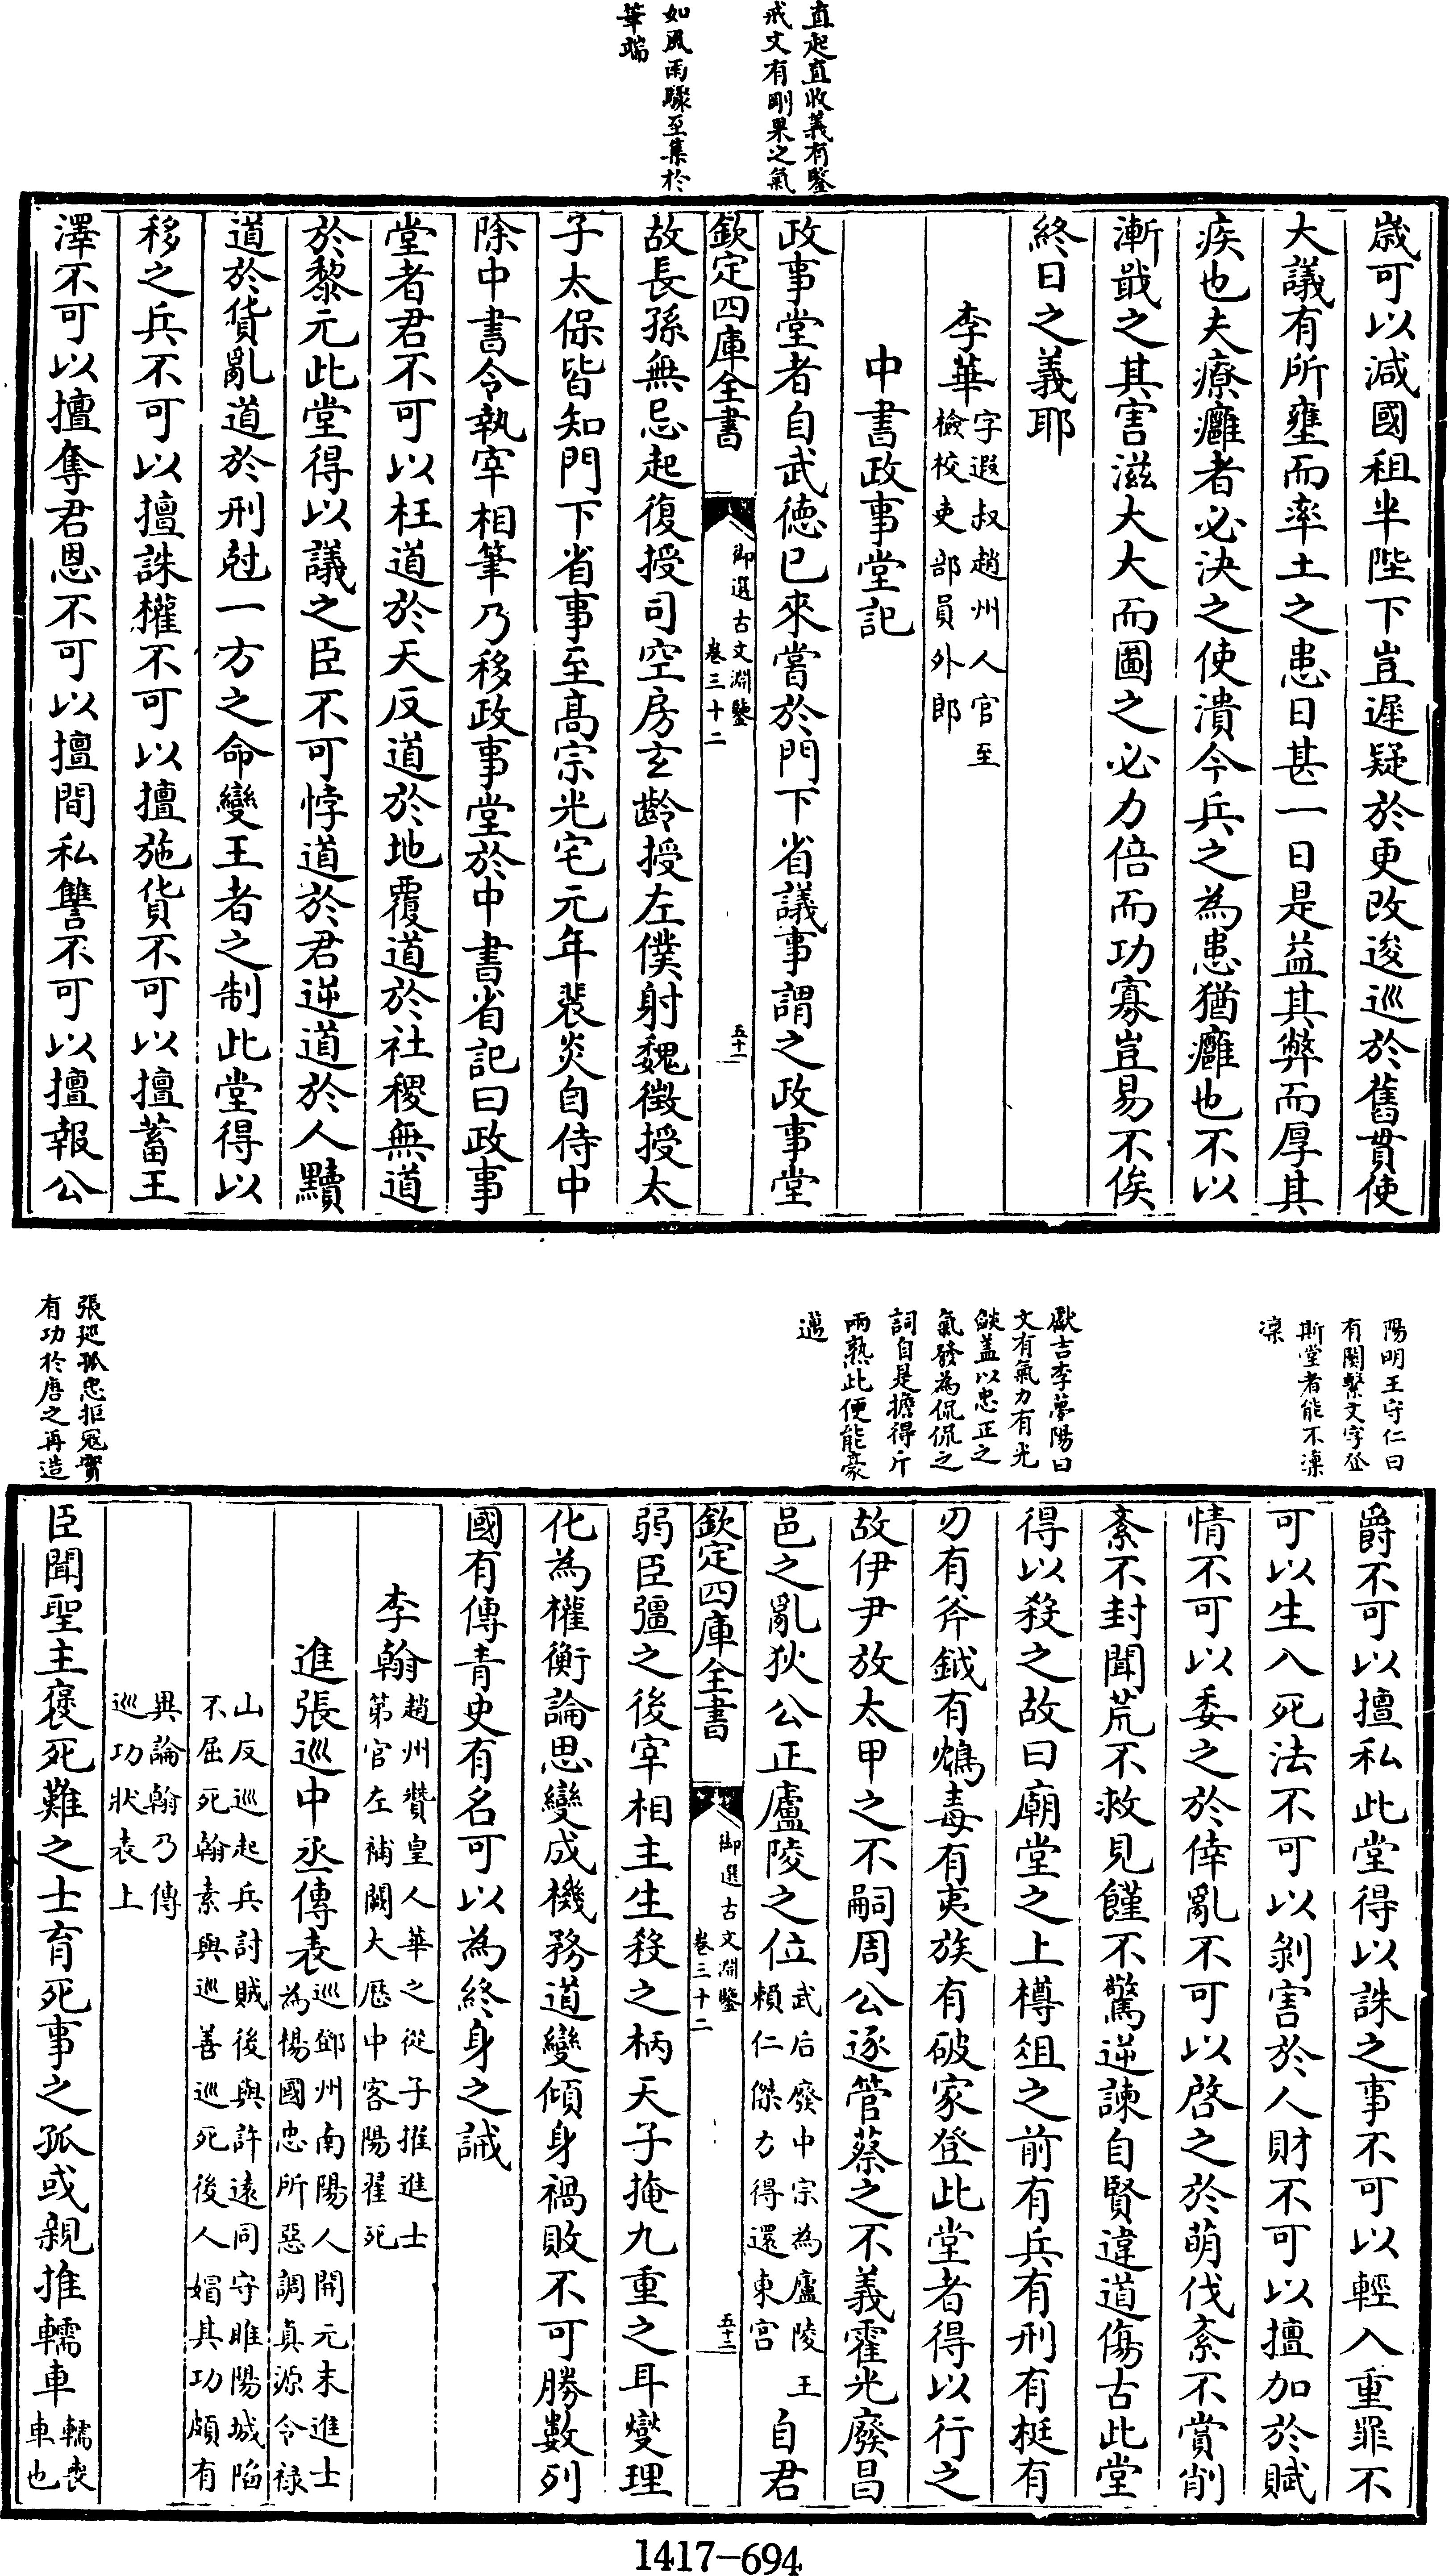 直起直收義有鑒
戒文有剛果之氣
如風雨驟至集於
筆端
歲可以減國租半陛下豈遲疑於更改逡巡於舊貫使
大議有所壅而率土之患日甚一日是益其弊而厚其
疾也夫療癰者必決之使潰今兵之為患猶癰也不以
漸戢之其害滋大大而圖之必力倍而功寡豈易不俟
終日之義耶
李華字遐叔趙州人官至
檢校吏部員外郎
中書政事堂記
政事堂者自武德已來嘗於門下省議事謂之政事堂
欽定四庫全書
御選古文淵鑒
卷三十二
五十一
故長孫無忌起復授司空房玄齡授左僕射魏徵授太
子太保皆知門下省事至高宗光宅元年裴炎自侍中
除中書令執宰相筆乃移政事堂於中書省記曰政事
堂者君不可以枉道於天反道於地覆道於社稷無道
於黎元此堂得以議之臣不可悖道於君逆道於人黷
道於貨亂道於刑尅一方之命變王者之制此堂得以
移之兵不可以擅誅權不可以擅施貨不可以擅蓄王
澤不可以擅奪君恩不可以擅間私讐不可以擅報公
陽明王守仁曰
有關繫文字登
斯堂者能不凜
凜
獻吉李夢陽曰
文有氣力有光
燄蓋以忠正之
氣發為侃侃之
詞自是擔得斤
兩熟此便能豪
邁
張廵孤忠拒冦實
有功於唐之再造
爵不可以擅私此堂得以誅之事不可以輕入重罪不
可以生入死法不可以剝害於人財不可以擅加於賦
情不可以委之於倖亂不可以啓之於萌伐紊不賞削
紊不封聞荒不救見饉不驚逆諫自賢違道傷古此堂
得以殺之故曰廟堂之上樽俎之前有兵有刑有梃有
刃有斧鉞有鴆毒有夷族有破家登此堂者得以行之
故伊尹放太甲之不嗣周公逐管蔡之不義霍光廢昌
邑之亂狄公正廬陵之位武后廢中宗為廬陵王
賴仁傑力得還東宮自君
欽定四庫全書
御選古文淵鑒
卷三十二
五十二
弱臣彊之後宰相主生殺之柄天子掩九重之耳燮理
化為權衡論思變成機務道變傾身禍敗不可勝數列
國有傳青史有名可以為終身之誡
李翰趙州贊皇人華之從子擢進士
第官左補闕大厯中客陽翟死
進張巡中丞傳表巡鄧州南陽人開元末進士
為楊國忠所惡調真源令禄
山反巡起兵討賊後與許遠同守睢陽城陷
不屈死翰素與巡善巡死後人媢其功頗有
異論翰乃傳
巡功狀表上
臣聞聖主褒死難之士育死事之孤或親推轜車轜喪
車也
1417-694